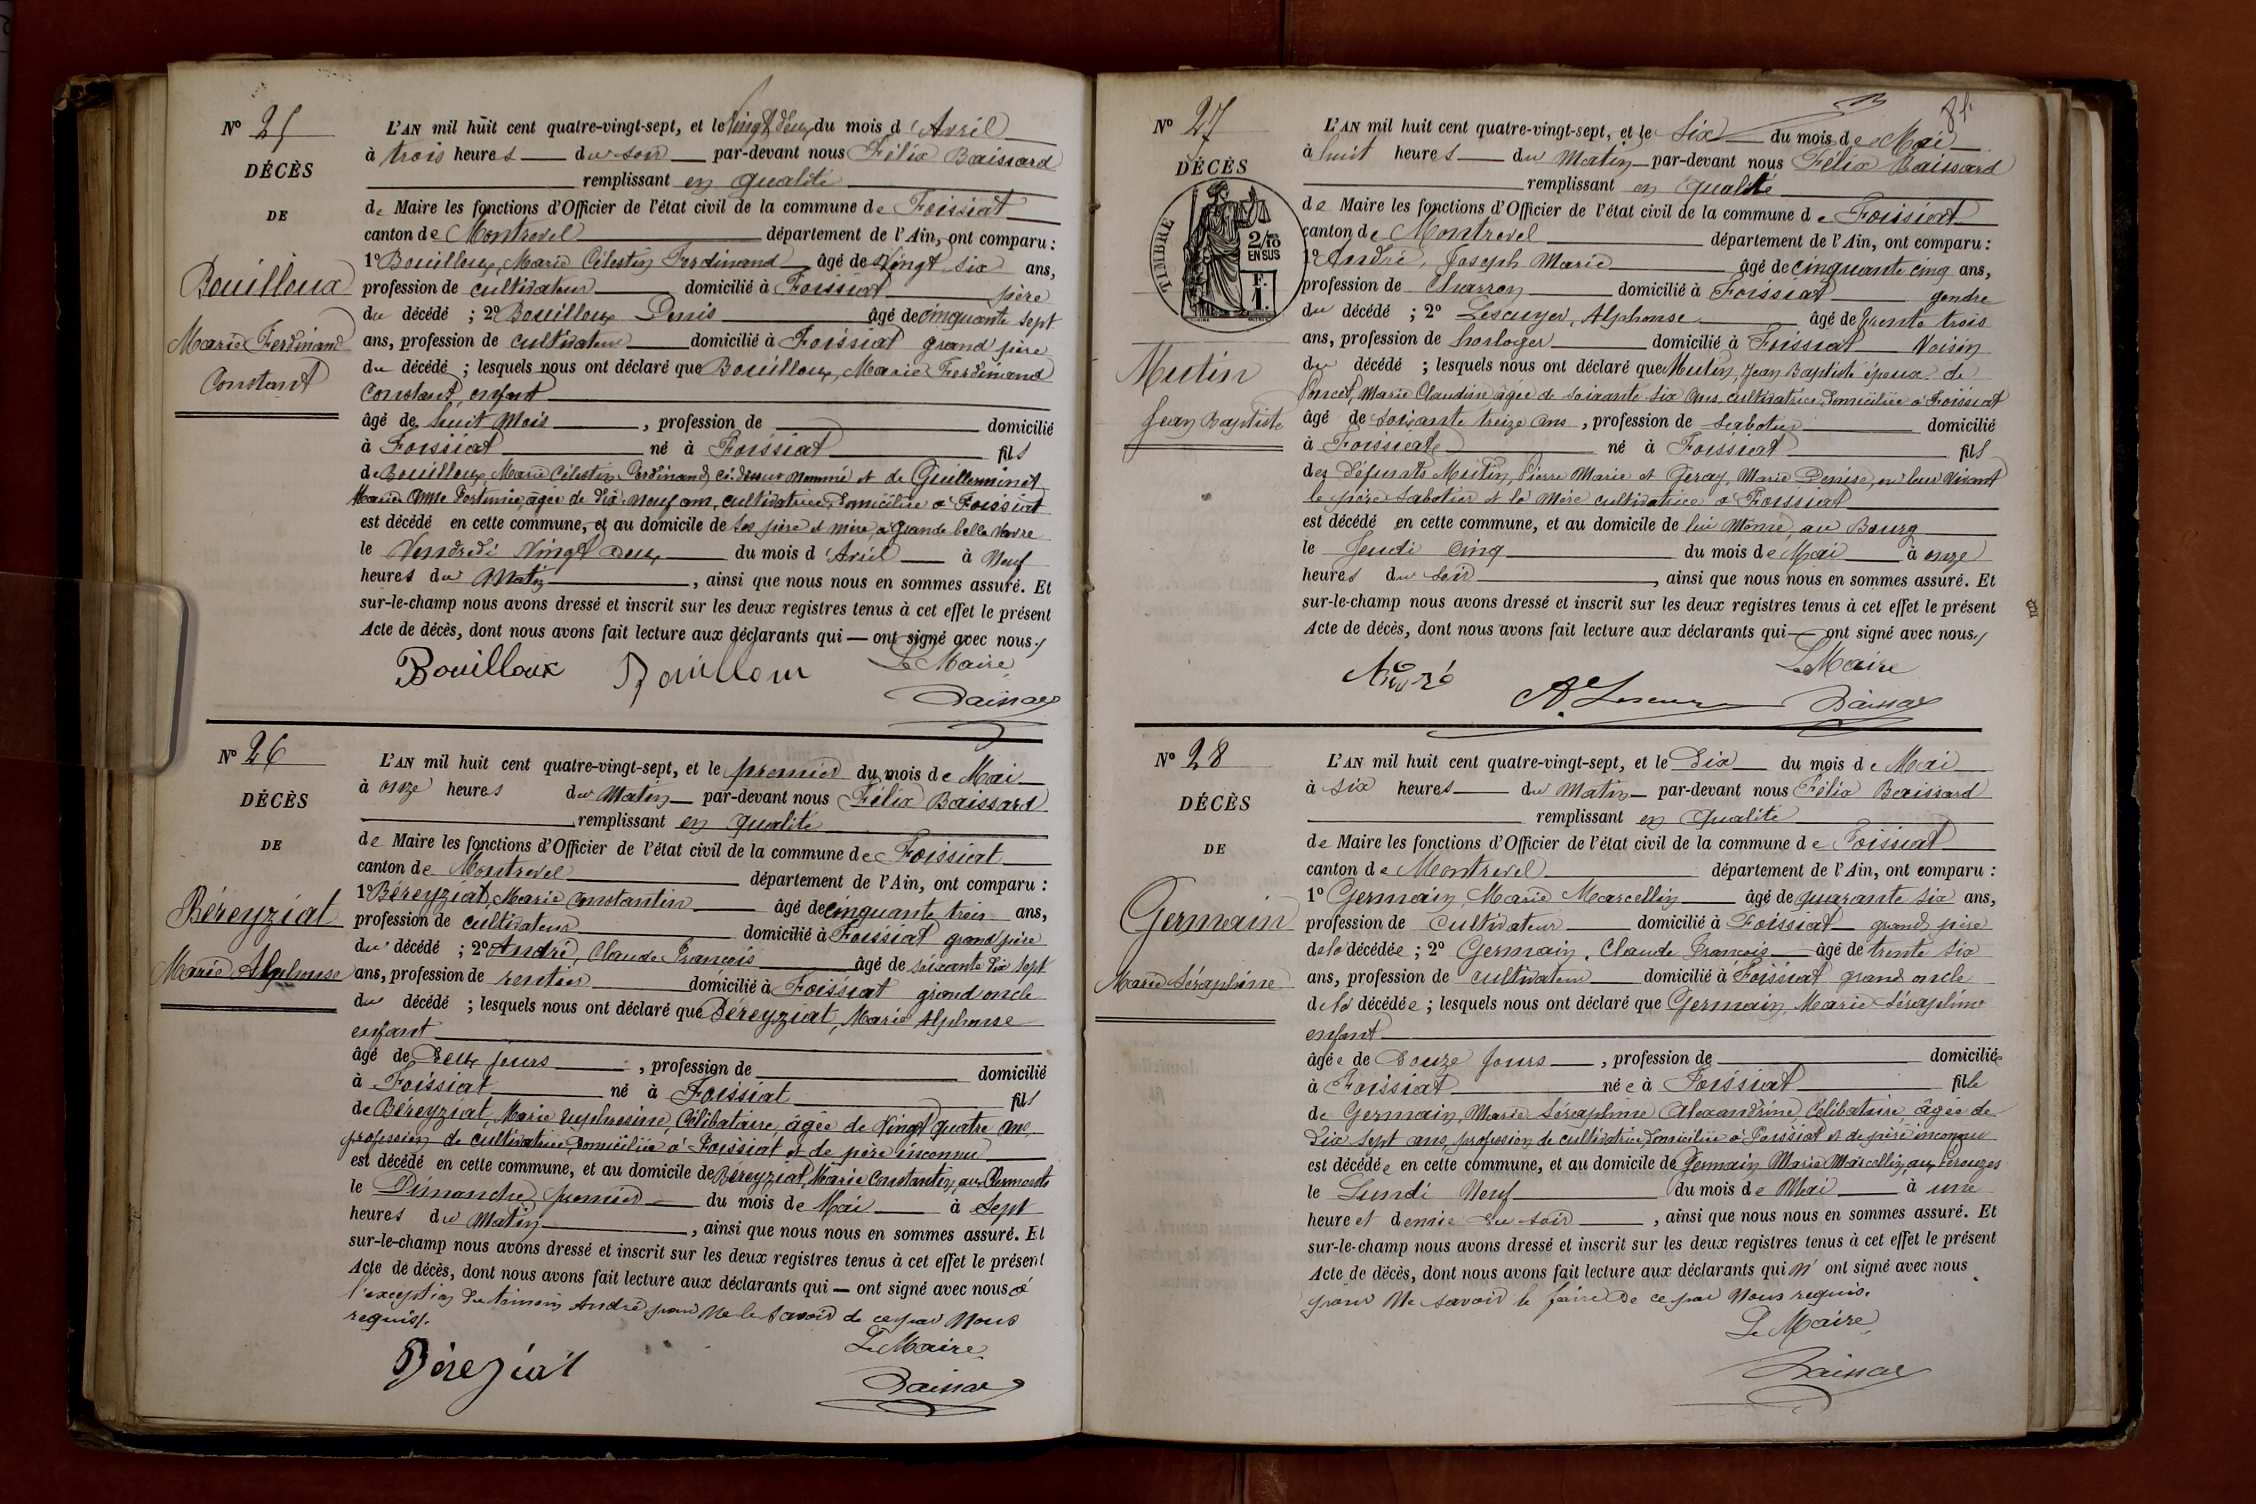 Nº 25
DÉCÈS
DE
Bouilloux
Marie Ferdinand
Constant
L'AN mil huit cent quatre-vingt-sept, et le vingt deux du mois d'Avril
à trois heures du soir par-devant nous Félix Baissard
remplissant en qualité
de Maire les fonctions d'Officier de l'état civil de la commune de Foissiat
canton de Montrevel département de l'Ain, ont comparu :
1º Bouilloux, Marie Célestin Ferdinand âgé de vingt six ans,
profession de cultivateur domicilié à Foissiat père
du décédé ; 2º Bouilloux Denis âgé de cinquante sept
ans, profession de cultivateur domicilié à Foissiat grand père
du décédé ; lesquels nous ont déclaré que Bouilloux, Marie Ferdinand
Constant, enfant
âgé de huit mois , profession de domicilié
à Foissiat né à Foissiat fils
de Bouilloux Marie Célestin Ferdinand, ci-dessus nommé et de Guillerminet
Marie Anne Fortunée, âgée de dix neuf ans, cultivatrice, domiciliée à Foissiat
est décédé en cette commune, et au domicile de ses père et mère, à Grande belle Vavre
le Vendredi vingt deux du mois d'Avril à neuf
heures du matin , ainsi que nous nous en sommes assuré. Et
sur-le-champ nous avons dressé et inscrit sur les deux registres tenus à cet effet le présent
Acte de décès, dont nous avons fait lecture aux déclarants qui ont signé avec nous
Le Maire
Bouilloux Bouilloux
Baissard
Nº 26
DÉCÈS
DE
Béreyziat
Marie Alphonse
L'AN mil huit cent quatre-vingt-sept, et le premier du mois de Mai
à onze heures du matin par-devant nous Félix Baissard
remplissant en qualité
de Maire les fonctions d'Officier de l'état civil de la commune de Foissiat
canton de Montrevel département de l'Ain, ont comparu :
1º Béreyziat, Marie Constantin âgé de cinquante trois ans,
profession de cultivateur domicilié à Foissiat grand père
du décédé ; 2º André, Claude François âgé de soixante dix sept
ans, profession de rentier domicilié à Foissiat grand oncle
du décédé ; lesquels nous ont déclaré que Béreyziat, Marie Alphonse
enfant
âgé de deux jours , profession de domicilié
à Foissiat né à Foissiat fils
de Béreyziat, Marie Euphrosine, Célibataire, âgée de vingt quatre ans,
profession de cultivatrice, domiciliée à Foissiat et de père inconnu
est décédé en cette commune, et au domicile de Béreyziat, Marie Constantin, aux
le Dimanche premier du mois de Mai à sept
heures du matin , ainsi que nous nous en sommes assuré. Et
sur-le-champ nous avons dressé et inscrit sur les deux registres tenus à cet effet le présent
Acte de décès, dont nous avons fait lecture aux déclarants qui ont signé avec nous à
l'exception du témoin André pour ne le savoir de ce par nous
requis.
Le Maire
Béreziat
Baissard
Nº 27
DÉCÈS
TIMBRE
2/10
EN SUS
F.
1.
Mutin
Jean Baptiste
L'AN mil huit cent quatre-vingt-sept, et le six du mois de Mai
à huit heures du matin par-devant nous Félix Baissard
remplissant en qualité
de Maire les fonctions d'Officier de l'état civil de la commune de Foissiat
canton de Montrevel département de l'Ain, ont comparu :
1º André, Joseph Marie âgé de cinquante cinq ans,
profession de Charron domicilié à Foissiat gendre
du décédé ; 2º Lescuyer, Alphonse âgé de trente trois
ans, profession de horloger domicilié à Foissiat voisin
du décédé ; lesquels nous ont déclaré que Mutin, Jean Baptiste époux de
Poncet, Marie Claudine âgée de soixante six ans, cultivatrice, domiciliée à Foissiat
âgé de soixante treize ans , profession de sabotier domicilié
à Foissiat né à Foissiat fils
des défunts Mutin, Pierre Marie et Géray, Marie Denise, en leur vivant
le père sabotier et la mère cultivatrice à Foissiat
est décédé en cette commune, et au domicile de lui même, au Bourg
le Jeudi cinq du mois de Mai à onze
heures du soir , ainsi que nous nous en sommes assuré. Et
sur-le-champ nous avons dressé et inscrit sur les deux registres tenus à cet effet le présent
Acte de décès, dont nous avons fait lecture aux déclarants qui ont signé avec nous
Le Maire
André
Baissard
Nº 28
DÉCÈS
DE
Germain
Marie Séraphine
L'AN mil huit cent quatre-vingt-sept, et le dix du mois de Mai
à six heures du matin par-devant nous Félix Baissard
remplissant en qualité
de Maire les fonctions d'Officier de l'état civil de la commune de Foissiat
canton de Montrevel département de l'Ain, ont comparu :
1º Germain, Marie Marcellin âgé de quarante six ans,
profession de cultivateur domicilié à Foissiat grand père
de la décédée ; 2º Germain, Claude François âgé de trente six
ans, profession de cultivateur domicilié à Foissiat grand oncle
de la décédée ; lesquels nous ont déclaré que Germain, Marie Séraphine
enfant
âgée de douze jours , profession de domiciliée
à Foissiat née à Foissiat fille
de Germain, Marie Séraphine Alexandrine, Célibataire, âgée de
dix sept ans, profession de cultivatrice, domiciliée à Foissiat et de père inconnu
est décédée en cette commune, et au domicile de Germain Marie Marcellin, aux
le Lundi neuf du mois de Mai à une
heure et demie du soir , ainsi que nous nous en sommes assuré. Et
sur-le-champ nous avons dressé et inscrit sur les deux registres tenus à cet effet le présent
Acte de décès, dont nous avons fait lecture aux déclarants qui n'ont signé avec nous
pour ne savoir le faire de ce par nous requis.
Le Maire
Baissard